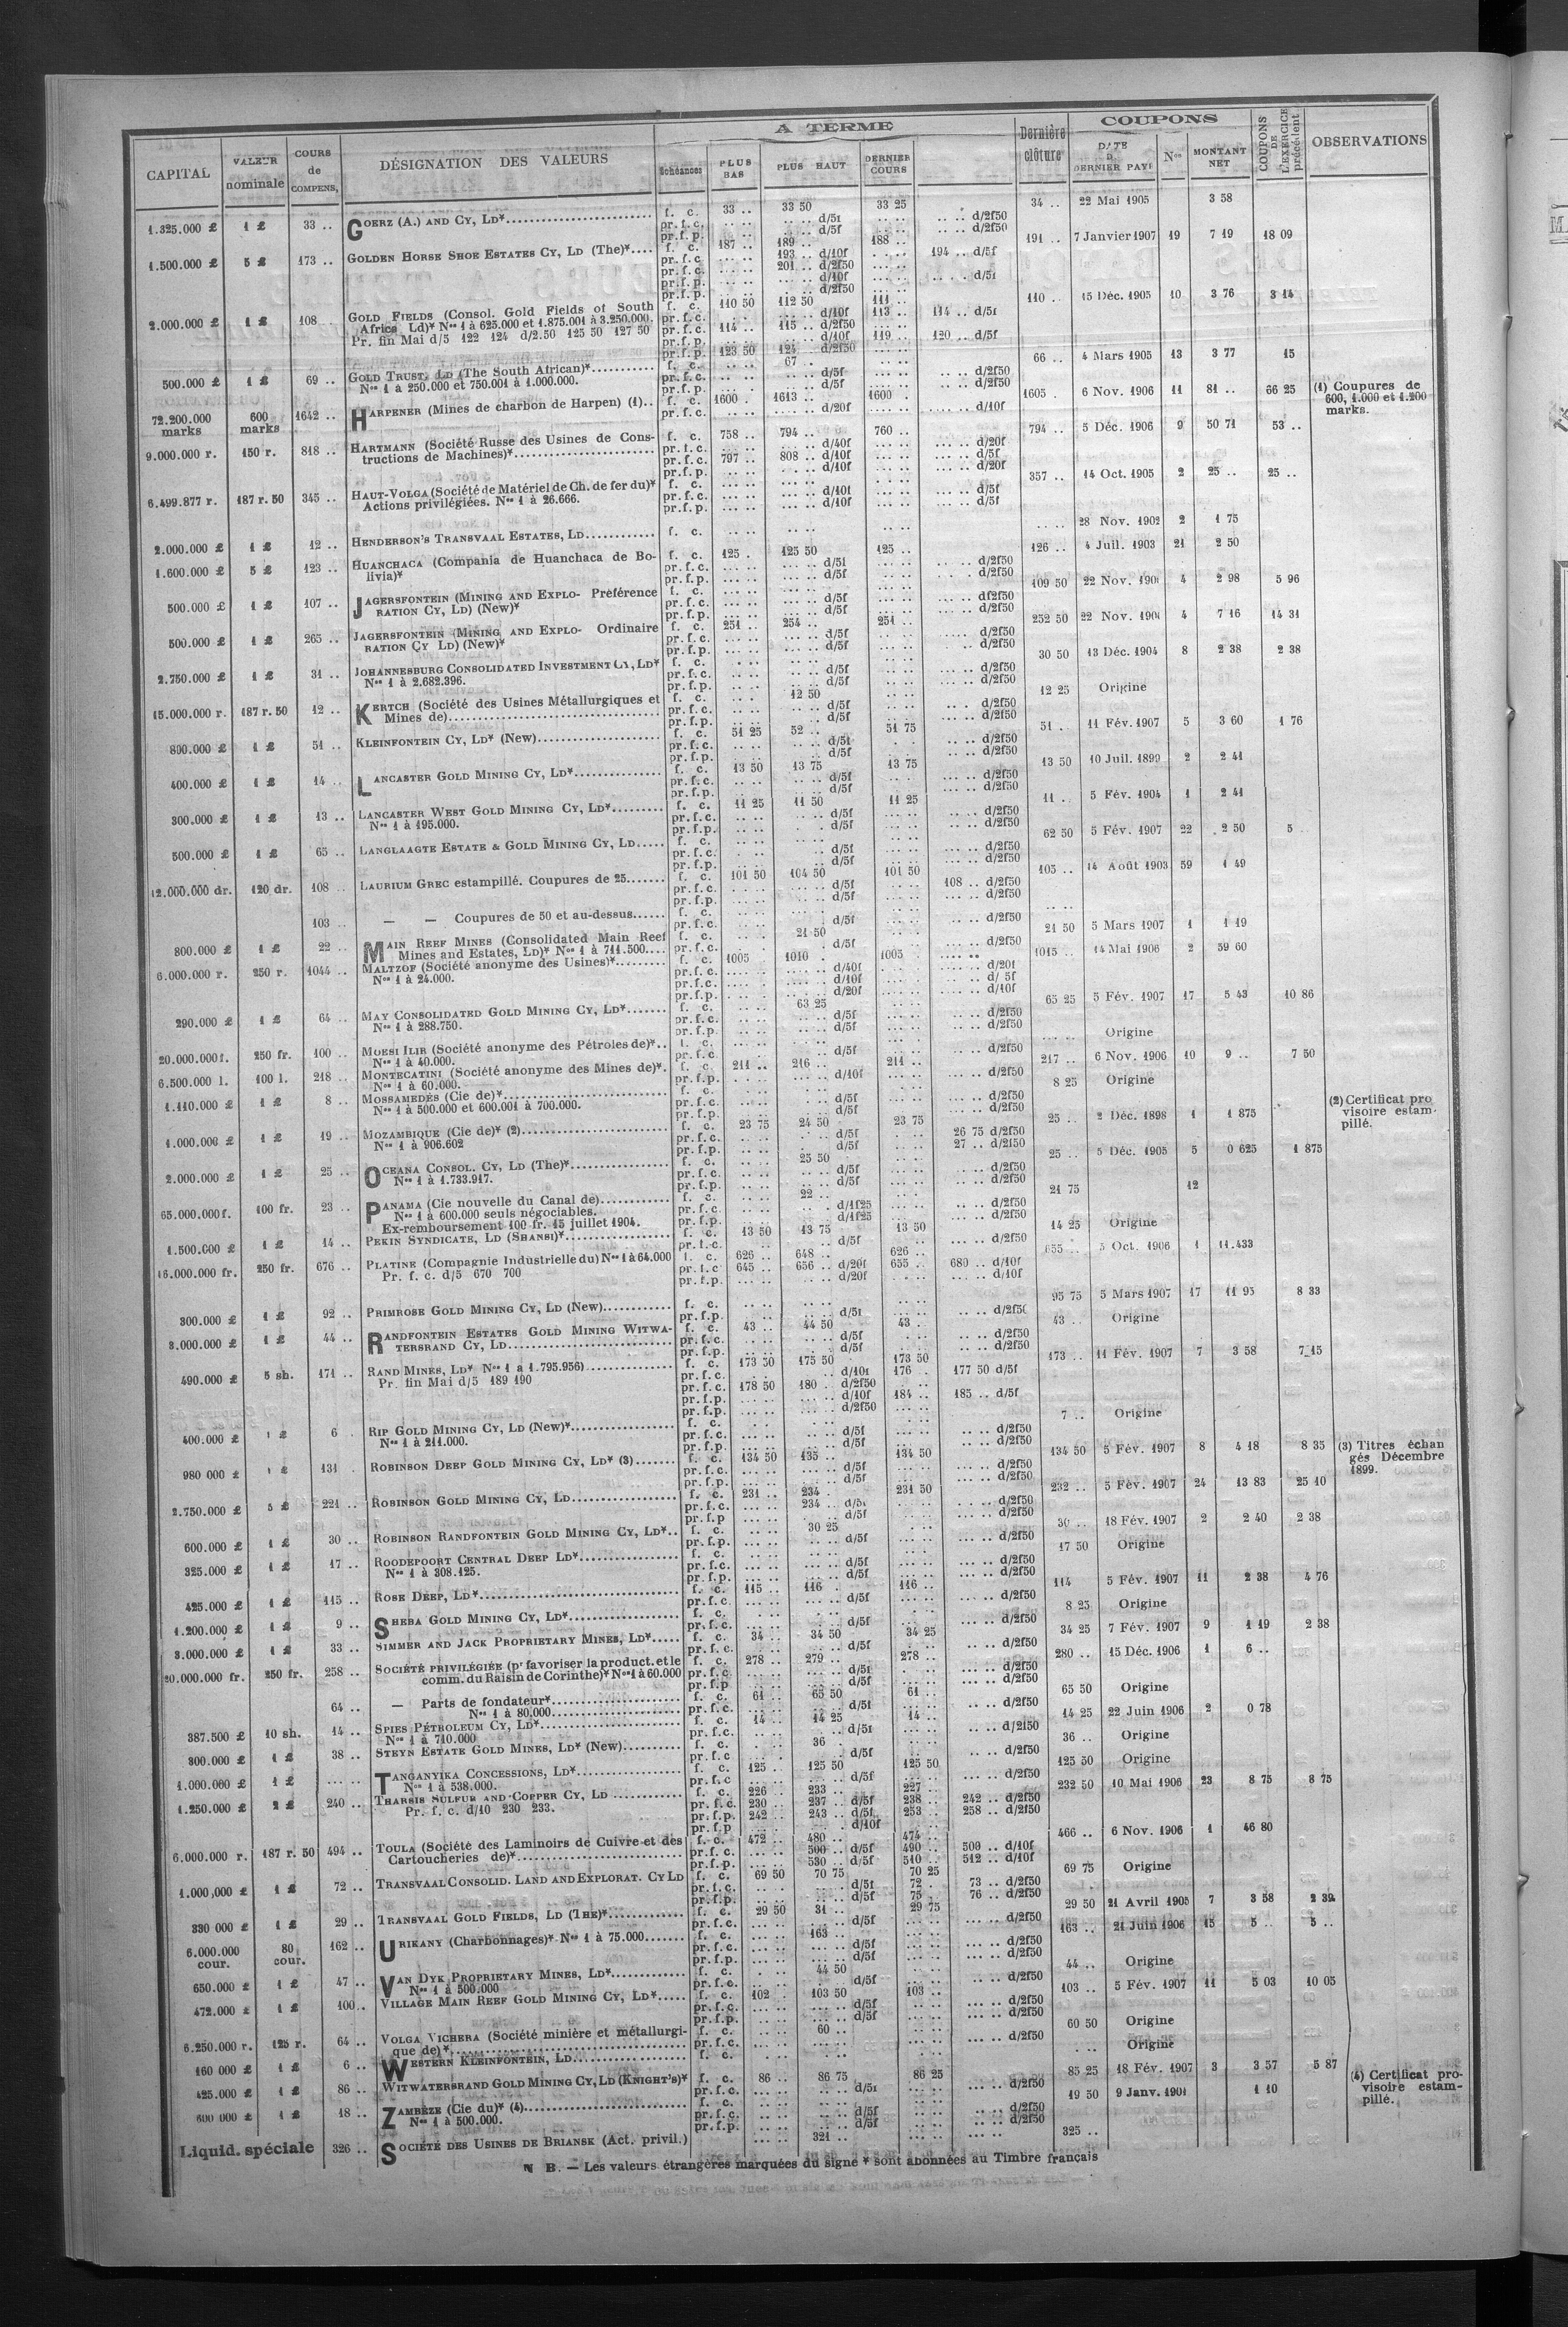 CAPITAL VALEUR nominale COURS de COMPENS, DÉSIGNATION DES VALEURS A TERME Échéances PLUS BAS PLUS HAUT DERNIER COURS Dernière clôture COUPONS DERNIER PAYÉ Nos MONTANT NET COUPONS DE L'EXERCICE précédent OBSERVATIONS
1.325.000 £ 1 £ 33 .. GOERZ (A.) AND CY, LD* f. c. 33 .. 33 50 33 25 34 .. 22 Mai 1905 3 58
pr. f. c. d/5f d/2f50
pr. f. p. d/5f d/2f50
1.500.000 £ 5 £ 173 .. GOLDEN HORSE SHOE ESTATES CY, LD (The)* f. c. 187 .. 189 .. 188 .. 191 .. 7 Janvier 1907 19 7 19 18 09
pr. f. c. 193 .. d/10f 194 .. d/5f
pr. f. c. 201 .. d/2f50
pr. f. p. d/10f d/5f
pr. f. p. d/2f50
2.000.000 £ 1 £ 108 GOLD FIELDS (Consol. Gold Fields of South f. c. 110 50 112 50 111 .. 110 .. 15 Déc. 1905 10 3 76 3 14
Africa Ld)* Nos 1 à 625.000 et 1.875.001 à 3.250.000. pr. f. c. d/10f 113 .. 114 .. d/5f
Pr. fin Mai d/5 122 124 d/2.50 125 50 127 50 pr. f. c. 114 .. 115 .. d/2f50
pr. f. p. d/10f 119 .. 120 .. d/5f
pr. f. p. 123 50 124 .. d/2f50
500.000 £ 1 £ 69 .. GOLD TRUST, LD (The South African)* f. c. 67 .. 66 .. 4 Mars 1905 13 3 77 15
Nos 1 à 250.000 et 750.001 à 1.000.000. pr. f. c. d/5f d/2f50
pr. f. p. d/5f d/2f50
72.200.000 marks 600 marks 1642 .. HARPENER (Mines de charbon de Harpen) (1).. f. c. 1600 . 1613 .. 1600 . 1605 . 6 Nov. 1906 11 81 .. 66 25 (1) Coupures de 600, 1.000 et 1.200 marks.
pr. f. c. d/20f d/10f
9.000.000 r. 150 r. 818 .. HARTMANN (Société Russe des Usines de Cons- f. c. 758 .. 794 .. 760 .. 794 .. 5 Déc. 1906 9 50 71 53 ..
tructions de Machines)* pr. f. c. d/40f d/20f
pr. f. c. 797 .. 808 .. d/10f d/5f
pr. f. p. d/10f d/20f
6.499.877 r. 187 r. 50 345 .. HAUT-VOLGA (Société de Matériel de Ch. de fer du)* f. c. 357 .. 14 Oct. 1905 2 25 .. 25 ..
Actions privilégiées. Nos 1 à 26.666. pr. f. c. d/10f d/5f
pr. f. p. d/10f d/5f
2.000.000 £ 1 £ 12 .. HENDERSON'S TRANSVAAL ESTATES, LD f. c. 28 Nov. 1902 2 1 75
1.600.000 £ 5 £ 123 .. HUANCHACA (Compania de Huanchaca de Bo- f. c. 125 . 125 50 125 .. 126 .. 4 Juil. 1903 21 2 50
livia)* pr. f. c. d/5f d/2f50
pr. f. p. d/5f d/2f50
500.000 £ 1 £ 107 .. JAGERSFONTEIN (MINING AND EXPLO- Préférence f. c. 109 50 22 Nov. 4 2 98 5 96
RATION CY, LD) (New)* pr. f. c. d/5f d/2f50
pr. f. p. d/5f d/2f50
500.000 £ 1 £ 265 .. JAGERSFONTEIN (MINING AND EXPLO- Ordinaire f. c. 251 .. 254 .. 251 .. 252 50 22 Nov. 4 7 16 14 31
RATION CY LD) (New)* pr. f. c. d/5f d/2f50
pr. f. p. d/5f d/2f50
2.750.000 £ 1 £ 31 .. JOHANNESBURG CONSOLIDATED INVESTMENT CY, LD* f. c. 30 50 13 Déc. 1904 8 2 38 2 38
Nos 1 à 2.682.396. pr. f. c. d/5f d/2f50
pr. f. p. d/5f d/2f50
15.000.000 r. 187 r. 50 12 .. KERTCH (Société des Usines Métallurgiques et f. c. 12 50 12 25 Origine
Mines de) pr. f. c. d/5f d/2f50
pr. f. p. d/5f d/2f50
800.000 £ 1 £ 51 .. KLEINFONTEIN CY, LD* (New) f. c. 51 25 52 .. 51 75 51 .. 11 Fév. 1907 5 3 60 1 76
pr. f. c. d/5f d/2f50
pr. f. p. d/5f d/2f50
400.000 £ 1 £ 14 .. LANCASTER GOLD MINING CY, LD* f. c. 13 50 13 75 13 75 13 50 10 Juil. 1899 2 2 41
pr. f. c. d/5f d/2f50
pr. f. p. d/5f d/2f50
300.000 £ 1 £ 13 .. LANCASTER WEST GOLD MINING CY, LD* f. c. 11 25 11 50 11 25 11 .. 5 Fév. 1904 1 2 41
Nos 1 à 195.000. pr. f. c. d/5f d/2f50
pr. f. p. d/5f d/2f50
500.000 £ 1 £ 65 .. LANGLAAGTE ESTATE & GOLD MINING CY, LD f. c. 62 50 5 Fév. 1907 22 2 50 5
pr. f. c. d/5f d/2f50
pr. f. p. d/5f d/2f50
12.000.000 dr. 120 dr. 108 .. LAURIUM GREC estampillé. Coupures de 25 f. c. 101 50 104 50 101 50 105 .. 14 Août 1903 59 1 49
pr. f. c. d/5f 108 .. d/2f50
pr. f. p. d/5f d/2f50
103 .. — — Coupures de 50 et au-dessus f. c.
pr. f. c. d/5f d/2f50
800.000 £ 1 £ 22 .. MAIN REEF MINES (Consolidated Main Reef f. c. 21 50 21 50 5 Mars 1907 1 1 19
Mines and Estates, LD)* Nos 1 à 711.500 pr. f. c. d/5f d/2f50
6.000.000 r. 250 r. 1044 .. MALTZOF (Société anonyme des Usines)* f. c. 1005 1010 . 1005 1015 .. 14 Mai 1906 2 59 60
Nos 1 à 24.000. pr. f. c. d/40f d/20f
pr. f. c. d/10f d/ 5f
pr. f. p. d/20f d/10f
290.000 £ 1 £ 64 .. MAY CONSOLIDATED GOLD MINING CY, LD* f. c. 63 25 65 25 5 Fév. 1907 17 5 43 10 86
Nos 1 à 288.750. pr. f. c. d/5f d/2f50
pr. f. p. d/5f d/2f50
20.000.000 f. 250 fr. 100 .. MOESI ILIR (Société anonyme des Pétroles de)*.. f. c. Origine
Nos 1 à 40.000. pr. f. c. d/5f d/2f50
6.500.000 l. 100 l. 218 .. MONTECATINI (Société anonyme des Mines de)*. f. c. 211 .. 216 .. 211 .. 217 .. 6 Nov. 1906 10 9 .. 7 50
Nos 1 à 60.000. pr. f. p. d/10f d/2f50
1.110.000 £ 1 £ 8 .. MOSSAMEDÈS (Cie de)* f. c. 8 25 Origine
Nos 1 à 500.000 et 600.001 à 700.000. pr. f. c. d/5f d/2f50
pr. f. p. d/5f d/2f50
1.000.000 £ 1 £ 19 .. MOZAMBIQUE (Cie de)* (2) f. c. 23 75 24 50 23 75 25 .. 2 Déc. 1898 1 1 875 (2) Certificat pro visoire estam- pillé.
Nos 1 à 906.602 pr. f. c. d/5f 26 75 d/2f50
pr. f. p. d/5f 27 .. d/2f50
2.000.000 £ 1 £ 25 .. OCEANA CONSOL. CY, LD (The)* f. c. 25 50 25 .. 5 Déc. 1905 5 0 625 1 875
Nos 1 à 1.733.917. pr. f. c. d/5f d/2f50
pr. f. p. d/5f d/2f50
65.000.000 f. 100 fr. 23 .. PANAMA (Cie nouvelle du Canal de) f. c. 22 .. 21 75 12
Nos 1 à 600.000 seuls négociables. pr. f. c. d/1f25 d/2f50
Ex-remboursement 100 fr. 15 juillet 1904. pr. f. p. d/1f25 d/2f50
1.500.000 £ 1 £ 14 .. PEKIN SYNDICATE, LD (SHANSI)* f. c. 13 50 13 75 13 50 14 25 Origine
pr. f. c. d/5f d/2f50
16.000.000 fr. 250 fr. 676 .. PLATINE (Compagnie Industrielle du) Nos 1 à 64.000 f. c. 626 .. 648 .. 626 .. 655 .. 5 Oct. 1906 1 11.433
Pr. f. c. d/5 670 700 pr. f. c 645 .. 656 .. d/20f 655 .. 680 .. d/10f
pr. f. p. d/20f d/10f
300.000 £ 1 £ 92 .. PRIMROSE GOLD MINING CY, LD (New) f. c. 95 75 5 Mars 1907 17 11 95 8 33
pr. f. p. d/5f d/2f50
3.000.000 £ 1 £ 44 .. RANDFONTEIN ESTATES GOLD MINING WITWA- f. c. 43 .. 44 50 43 .. 43 .. Origine
TERSRAND CY, LD pr. f. c. d/5f d/2f50
pr. f. p. d/5f d/2f50
490.000 £ 5 sh. 171 .. RAND MINES, LD* Nos 1 à 1.795.956) f. c. 173 50 175 50 173 50 173 .. 11 Fév. 1907 7 3 58 7 15
Pr. fin Mai d/5 189 190 pr. f. c. d/10f 176 . 177 50 d/5f
pr. f. c. 178 50 180 . d/2f50
pr. f. p. d/10f 184 .. 185 .. d/5f
pr. f. p. d/2f50
400.000 £ 1 £ 6 . RIP GOLD MINING CY, LD (New)* f. c. 7 .. Origine
Nos 1 à 211.000. pr. f. c. d/5f d/2f50
pr. f. p. d/5f d/2f50
980 000 £ 1 £ 131 . ROBINSON DEEP GOLD MINING CY, LD* (3) f. c. 134 50 135 .. 134 50 134 50 5 Fév. 1907 8 4 18 8 35 (3) Titres échan gés Décembre 1899.
pr. f. c. d/5f d/2f50
pr. f. p. d/5f d/2f50
2.750.000 £ 5 £ 221 .. ROBINSON GOLD MINING CY, LD f. c. 231 .. 234 . 231 50 232 .. 5 Fév. 1907 24 13 83 25 10
pr. f. c. 234 .. d/5f d/2f50
pr. f. p d/5f d/2f50
600.000 £ 1 £ 30 .. ROBINSON RANDFONTEIN GOLD MINING CY, LD*.. f. c. 30 25 30 .. 18 Fév. 1907 2 2 40 2 38
pr. f. p. d/5f d/2f50
325.000 £ 1 £ 17 .. ROODEPOORT CENTRAL DEEP LD* f. c. 17 50 Origine
Nos 1 à 308.125. pr. f. c. d/5f d/2f50
pr. f. p. d/5f d/2f50
425.000 £ 1 £ 115 .. ROSE DEEP, LD* f. c. 115 .. 116 . 116 .. 114 5 Fév. 1907 11 2 38 4 76
pr. f. c. d/5f d/2f50
1.200.000 £ 1 £ 9 .. SHEBA GOLD MINING CY, LD* f. c. 8 25 Origine
pr. f. c. d/5f d/2f50
3.000.000 £ 1 £ 33 .. SIMMER AND JACK PROPRIETARY MINES, LD* f. c. 34 .. 34 50 34 25 34 25 7 Fév. 1907 9 1 19 2 38
pr. f. c. d/5f d/2f50
20.000.000 fr. 250 fr. 258 .. SOCIÉTÉ PRIVILÉGIÉE (pr favoriser la product. et le f. c. 278 .. 279 .. 278 .. 280 .. 15 Déc. 1906 1 6 ..
comm. du Raisin de Corinthe)* Nos 1 à 60.000 pr. f. c. d/5f d/2f50
pr. f. p d/5f d/2f50
64 .. — Parts de fondateur* f. c. 61 .. 65 50 61 .. 65 50 Origine
Nos 1 à 80,000 pr. f. c. d/5f d/2f50
387.500 £ 10 sh. 14 .. SPIES PÉTROLEUM CY, LD* f. c. 14 .. 14 25 14 .. 14 25 22 Juin 1906 2 0 78
Nos 1 à 710.000 pr. f. c. d/5f d/2f50
300.000 £ 1 £ 38 .. STEYN ESTATE GOLD MINES, LD* (New) f. c. 36 . 36 .. Origine
pr. f. c d/5f d/2f50
1.000.000 £ 1 £ TANGANYIKA CONCESSIONS, LD* f. c. 125 .. 125 50 125 50 125 50 Origine
Nos 1 à 538.000. pr. f. c d/5f d/2f50
1.250.000 £ 2 £ 240 .. THARSIS SULFUR AND COPPER CY, LD f. c. 226 .. 233 .. 227 .. 232 50 10 Mai 1906 23 8 75 8 75
Pr. f. c. d/10 230 233. pr. f. c. 230 .. 237 .. d/5f 238 .. 242 .. d/2f50
pr. f. p. 242 .. 243 .. d/5f 253 .. 258 .. d/2f50
pr. f. p d/10f
6.000.000 r. 187 r. 50 494 .. TOULA (Société des Laminoirs de Cuivre et des f. c. 472 .. 480 .. 474 .. 466 .. 6 Nov. 1906 1 46 80
Cartoucheries de)* pr. f. c. 500 .. d/5f 490 .. 509 .. d/10f
pr. f. p. 530 .. d/5f 510 .. 512 .. d/10f
1.000,000 £ 1 £ 72 .. TRANSVAAL CONSOLID. LAND AND EXPLORAT. CY LD f. c. 69 50 70 75 70 25 69 75 Origine
pr. f. c. d/5f 72 . 73 .. d/2f50
pr. f. p. d/5f 75 . 76 .. d/2f50
330 000 £ 1 £ 29 .. TRANSVAAL GOLD FIELDS, LD (THE)* f. c. 29 50 31 .. 29 75 29 50 21 Avril 1905 7 3 58 2 39
pr. f. c. d/5f d/2f50
6.000.000 cour. 80 cour. 162 .. URIKANY (Charbonnages)* Nos 1 à 75.000 f. c. 163 .. 163 .. 21 Juin 1906 15 5 .. 5 ..
pr. f. c. d/5f d/2f50
pr. f. p. d/5f d/2f50
650.000 £ 1 £ 47 .. VAN DYK PROPRIETARY MINES, LD* f. c. 44 50 44 .. Origine
Nos 1 à 500.000 pr. f. c. d/5f d/2f50
472.000 £ 1 £ 100 .. VILLAGE MAIN REEF GOLD MINING CY, LD* f. c. 102 103 50 103 .. 103 .. 5 Fév. 1907 11 5 03 10 05
pr. f. c. d/5f d/2f50
pr. f. p. d/5f d/2f50
6.250.000 r. 125 r. 64 .. VOLGA VICHERA (Société minière et métallurgi- f. c. 60 .. 60 50 Origine
que de)* pr. f. c. d/2f50
160 000 £ 1 £ 6 .. WESTERN KLEINFONTEIN, LD f. c. Origine
425.000 £ 1 £ 86 .. WITWATERSRAND GOLD MINING CY, LD (KNIGHT'S)* f. c. 86 .. 86 75 86 25 85 25 18 Fév. 1907 3 3 57 5 87 (4) Certificat pro- visoire estam- pillé.
pr. f. c. d/5f d/2f50
600 000 £ 1 £ 18 .. ZAMBÈZE (Cie du)* (4) f. c. 19 50 9 Janv. 1901 1 10
Nos 1 à 500.000. pr. f. c. d/5f d/2f50
pr. f. p. d/5f d/2f50
Liquid. spéciale 326 .. SOCIÉTÉ DES USINES DE BRIANSK (Act. privil.) 321 .. 325 ..
N B. — Les valeurs étrangères marquées du signe * sont abonnées au Timbre français